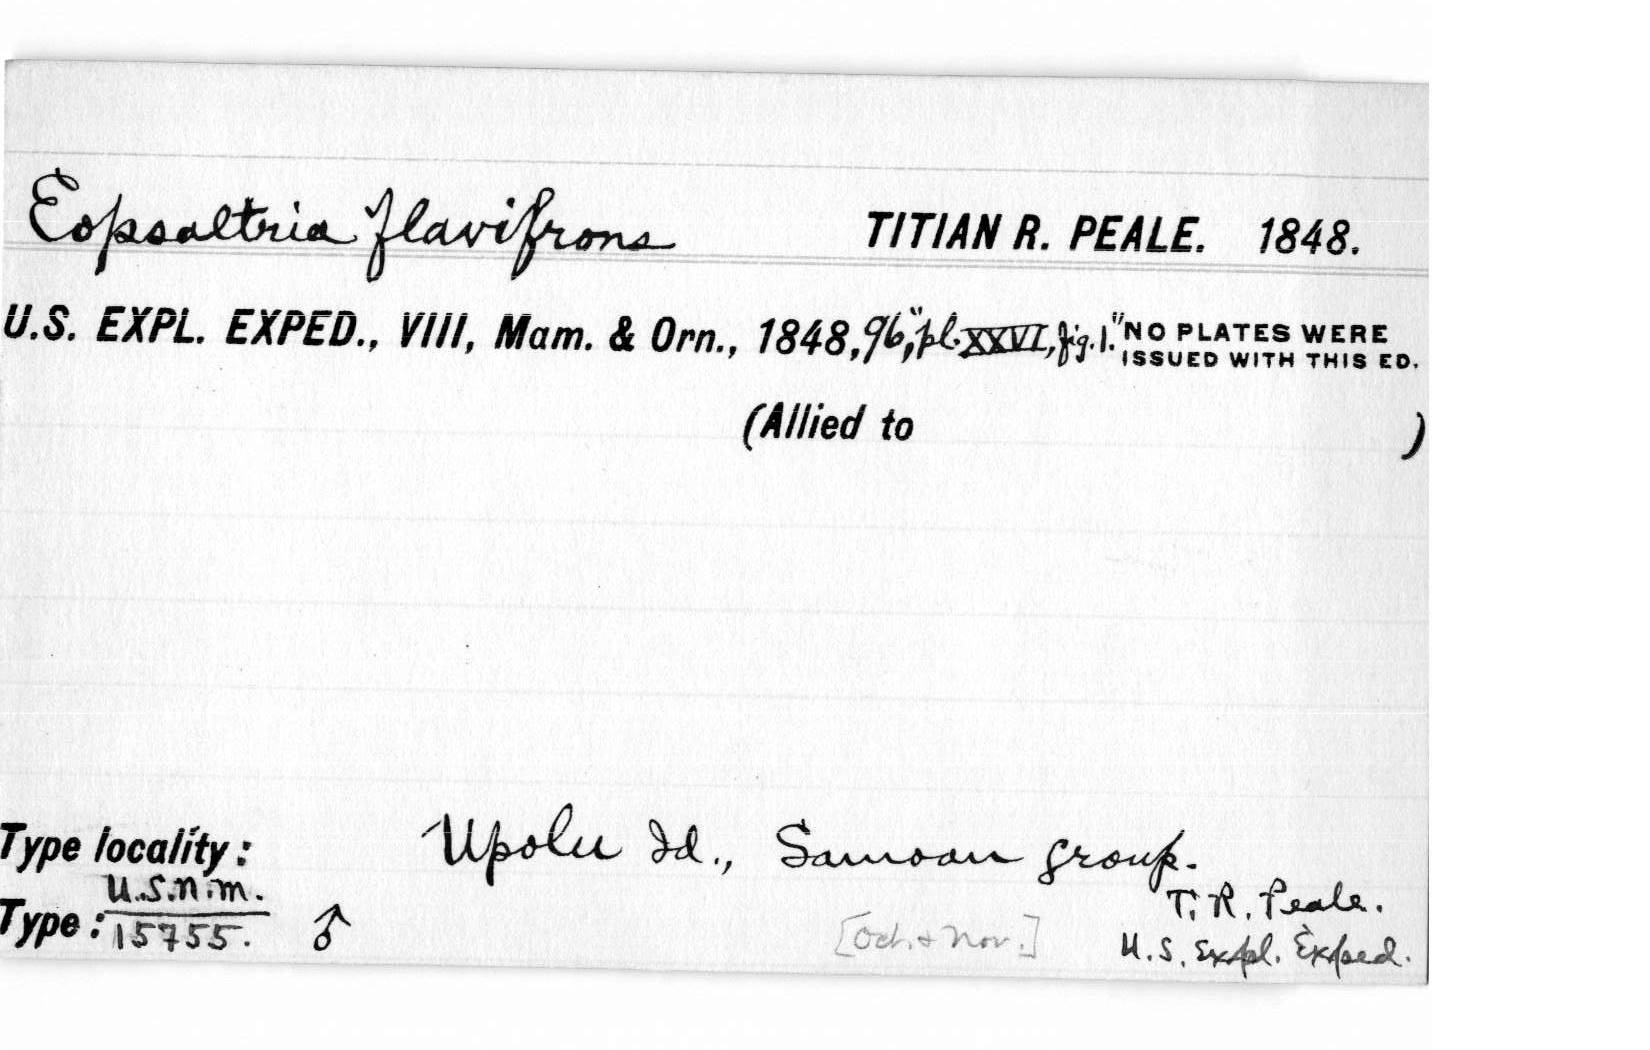 Eopsaltria flavifrons TITIAN R. PEALE. 1848.
U.S. EXPL. EXPED., VIII, Mam. & Orn., 1848, 96, "pl. XXVI, fig. 1." NO PLATES WERE
ISSUED WITH THIS ED.
(Allied to )
Type locality: Upolu Id., Samoan group.
U.S.N.M.
Type: 15755. ♂ [Oct. + Nov.] T. R. Peale.
U.S. Expl. Exped.